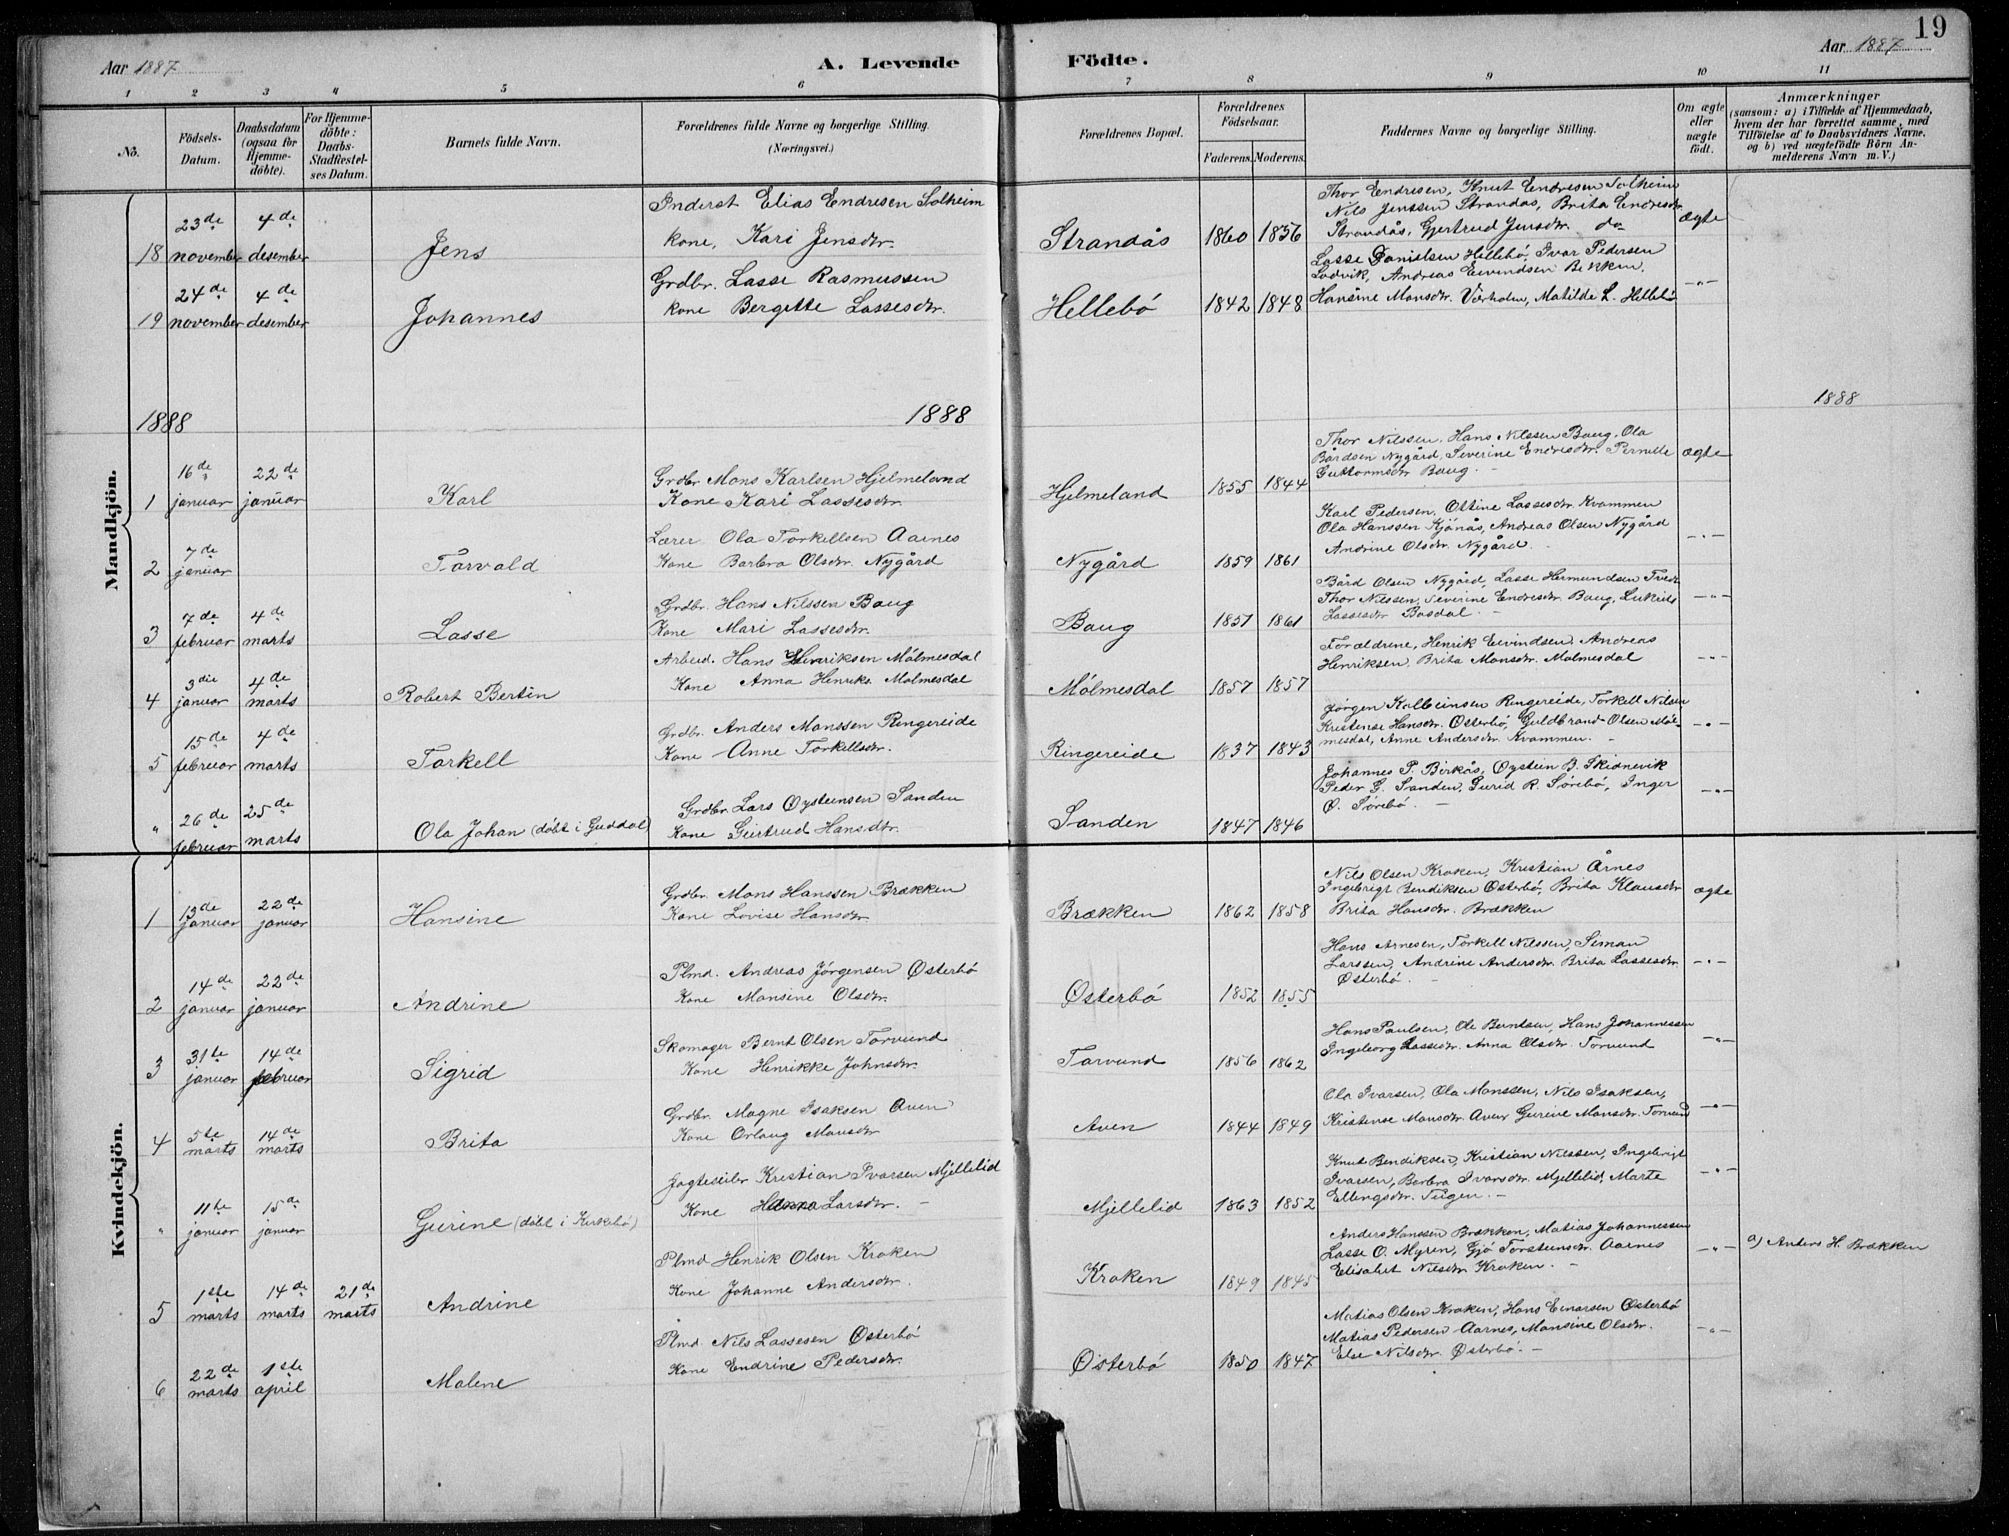 19
Aar 1887
A. Levende Födte.
Aar 1887
1 2 3 4 5 6 7 8 9 10 11
No.
Födsels-Datum.
Daabsdatum (ogsaa for Hjemme-döbte).
For Hjemme-döbte: Daabs-Stadfæstel-ses Datum.
Barnets fulde Navn.
Forældrenes fulde Navne og borgerlige Stilling.
(Næringsvei.)
Forældrenes Bopæl.
Forældrenes Födselsaar.
Faderens. Moderens.
Faddernes Navne og borgerlige Stilling.
Om ægte eller uægte födt.
Anmærkninger
(saasom: a) i Tilfælde af Hjemmedaab,
hvem der har forrettet samme, med
Tilföielse af to Daabsvidners Navne,
og b) ved uægtefödte Börn An-
melderens Navn m. V.)
Mandkjön.
18 23de november 4de desember Jens
Inderst Elias Endresen Solheim
kone, Kari Jensdr.
Strandås 1860 1856
Thor Endresen, Knut Endresen Solheim
Nils Jenssen Strandås, Brita Endresdr.
Strandås, Gjertrud Jensdr. do
ægte
19 24de november 4de desember Johannes
Grdbr. Lasse Rasmussen
kone Bergitte Lassesdr.
Hellebö 1842 1848
Lasse Danielsen Hellebö, Ivar Pedersen
Ladvik, Andreas Eivindsen Bekken,
Hansine Monsdr. Værholm, Matilde L. Hellebö
-"-
1888 1888 1888
1 16de januar 22de januar Karl
Grdbr Mons Karlsen Hjelmeland
Kone Kari Lassesdr.
Hjelmeland 1855 1844
Thor Nilssen, Hans Nilssen Baug, Ola
Bårdsen Nygård, Severine Endresdr. Pernille
Guttormsdr Baug. -
ægte
2 7de januar Torvald
Lærer Ola Torkellsen Aarnes
Kone Barbra Olsdr. Nygård
Nygård 1859 1861
Karl Pedersen, Oltine Lassesdr Kvammen
Ola Hanssen Kjönås, Andreas Olsen Nygård
Andrine Olsdr. Nygård.
-"-
3 7de februar 4de marts Lasse
Grdbr. Hans Nilssen Baug
Kone Mari Lassesdr.
Baug 1857 1861
Bård Olsen Nygård, Lasse Hermundsen Tvedt
Thor Nilssen, Severine Endresdr. Baug, Lukris
Lassesdr Basdal. -
-"-
4 3die januar 4de marts Robert Bertin
Arbeid. Hans Henriksen Mölmesdal
Kone Anna Henriks. Mölmesdal
Mölmesdal 1857 1857
Foraldrene, Henrik Eivindsen, Andreas
Henriksen, Brita Monsdr. Molmesdal
-"-
5 15de februar 4de marts Torkell
Grdbr. Anders Monssen Ringereide
Kone Anne Torkellsdr.
Ringereide 1837 1843
Jörgen Kolbeinsen Ringereide, Torkell Nilsen
Kristense Hansdr. Osterbö, Guldbrand Olsen Möl-
mesdal, Anne Andersdr. Kvammen. -
-"-
" 26de februar 25de marts Ola Johan (döbt i Guddal)
Grdbr Lars Oysteinsen Sanden
Kone Gjertrud Hansdr.
Sanden 1847 1846
Johannes P. Birkås, Oystein B. Skidnevik
Peder G. Sanden, Gurid R. Sörebö, Inger
O. Sörebö. -
-"-
Kvindekjön.
1 13de januar 22de januar Hansine
Grdbr. Mons Hanssen Brækken
Kone Lovise Hansdr.
Brækken 1862 1858
Nils Olsen Kroken, Kristian Årnes
Ingebrigt Bendiksen Osterbö, Brita Klausdr
Brita Hansdr. Brækken
ægte
2 14de januar 22de januar Andrine
Plmd. Andreas Jörgensen Osterbö
Kone Monsine Olsdr.
Osterbö 1852 1855
Hans Arnesen, Torkell Nilssen, Simon
Larssen, Andrine Andersdr. Brita Lassesdr
Østerbö. -
-"-
3 31te januar 14de februar Sigrid
Skomager Bernt Olsen Torvund
Kone Henrikke Johnsdr.
Torvund 1856 1862
Hans Paulsen, Ole Berntsen, Hans Johannessen
Ingeborg Lassesdr. Anna Olsdr. Torvund
-"-
4 5te marts 14de marts Brita
Grdbr. Magne Isaksen Aven
Kone Orlaug Monsdr
Aven 1844 1849
Ola Ivarsen, Ola Monssen, Nils Isaksen,
Kristense Monsdr. Aven Gurine Monsdr. Torvund
-"-
" 11te januar 15de januar Gurine (döbt i Kirkebö)
Jagteseiler Kristian Ivarsen Mjellelid
Kone Hanna Larsdr. -
Mjellelid 1863 1852
Knut Bendiksen, Kristian Nilssen, Ingebrigt
Ivarsen, Berbra Ivarsdr. Mjellelid, Marte
Ellingsdr. Tugen. -
-"-
5 1ste marts 14de marts 21de marts Andrine
Plmd Henrik Olsen Kroken
Kone Johanne Andersdr.
Kroken 1849 1845
Anders Hanssen Brækken, Matias Johannessen
Lasse O. Myren, Gjö Torsteinsdr. Aarnes
Elisabet Nilsdr Kroken. -
-"-
a) Anders H. Brækken
6 22de marts 1ste april Malene
Plmd. Nils Lassesen Østerbö
Kone Endrine Pedersdr.
Osterbö 1850 1847
Matias Olsen Kroken, Hans Einarsen Osterbö
Matias Pedersen Aarnes, Monsine Olsdr.
Else Nilsdr. Østerbö. -
-"-